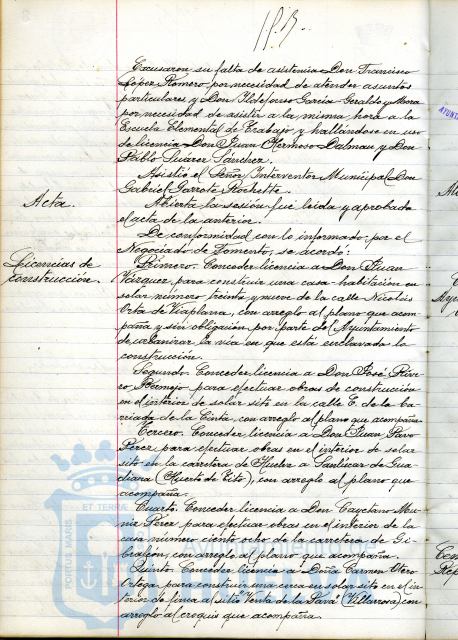 Excusaron su falta de asistencia Don Francisco
López Romero, por necesidad de atender asuntos
particulares y Don Ildefonso García Geraldo y Mora
por necesidad de asistir a la misma hora a la
Escuela Elemental de Trabajo, y hallándose en uso
de licencia Don Juan Hermoso Dalmau y Don
Pablo Suárez Sánchez.
Asistió el Señor Interventor Municipal Don
Gabriel Garrote Rochette.
Acta.
Abierta la sesión fué leída y aprobada
el acta de la anterior.
De conformidad con lo informado por el
Negociado de Fomento, se acordó:
Licencias de
construcción.
Primero. Conceder licencia a Don Juan
Vázquez, para construir una casa-habitación en
solar número treinta y nueve de la calle Nicolás
Orta de Viaplana, con arreglo al plano que acom-
paña y sin obligación por parte del Ayuntamiento
de urbanizar la vía en que está enclavada la
construcción.
Segundo. Conceder licencia a Don José Rive-
ro Bermejo para efectuar obras de construcción
en el interior de solar sito en la calle E. de la ba-
rriada de la Cinta, con arreglo al plano que acompaña.
Tercero. Conceder licencia a Don Juan Pavo
Pérez para efectuar obras en el interior de solar
sito en la carretera de Huelva a Sanlúcar de Gua-
diana (Huerto de), con arreglo al plano que
acompaña.
Cuarto. Conceder licencia a Don Cayetano Mu-
ñiz Pérez para efectuar obras en el interior de la
casa número ciento ocho de la carretera de Gi-
braleón, con arreglo al plano que acompaña.
Quinto. Conceder licencia a Doña Carmen Otero
Ortega, para construir una cerca en solar sito en el in-
terior de línea al sitio "Venta de la Pava" (Villarrosa) con
arreglo al croquis que acompaña.
PORTUS MARIS
ET TERRAE